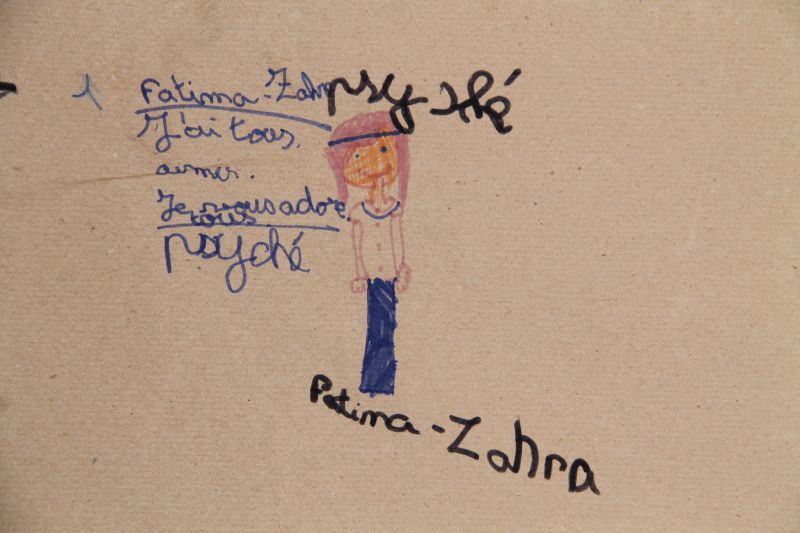 Fatima-Zahra
psyché
J'ai tous
aimer.
Je vous adore
tous
psyché
Fatima-Zahra